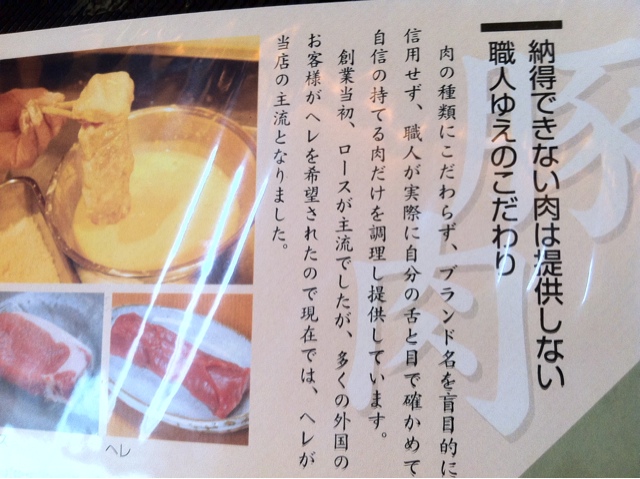 豚肉
納得できない肉は提供しない
職人ゆえのこだわり
肉の種類にこだわらず、ブランド名を盲目的に
信用せず、職人が実際に自分の舌と目で確かめて
自信の持てる肉だけを調理し提供しています。
創業当初、ロースが主流でしたが、多くの外国の
お客様がヘレを希望されたので現在では、ヘレが
当店の主流となりました。
ヘレ